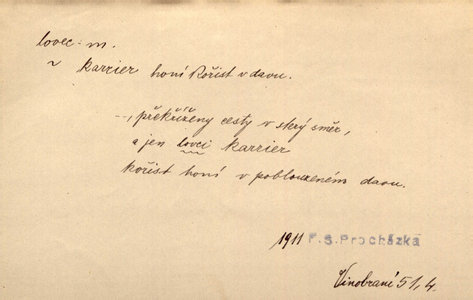 lovec -m.
~ karrier honí kořist v davu.
--, překříženy cesty v skrý směr,
a jen lovci karrier
kořist honí v poblouzeném davu.
1911 F. S. Procházka
Vinobraní 51, 4.